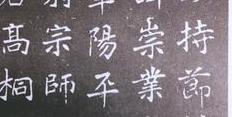 持節
崇業
陽平
宗師
髙桐